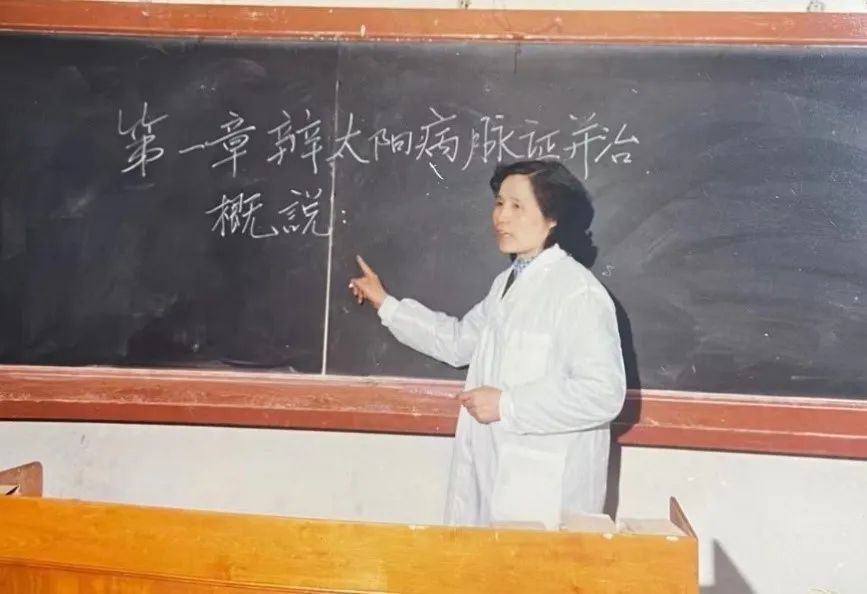 第一章 辨太阳病脉证并治
概説: